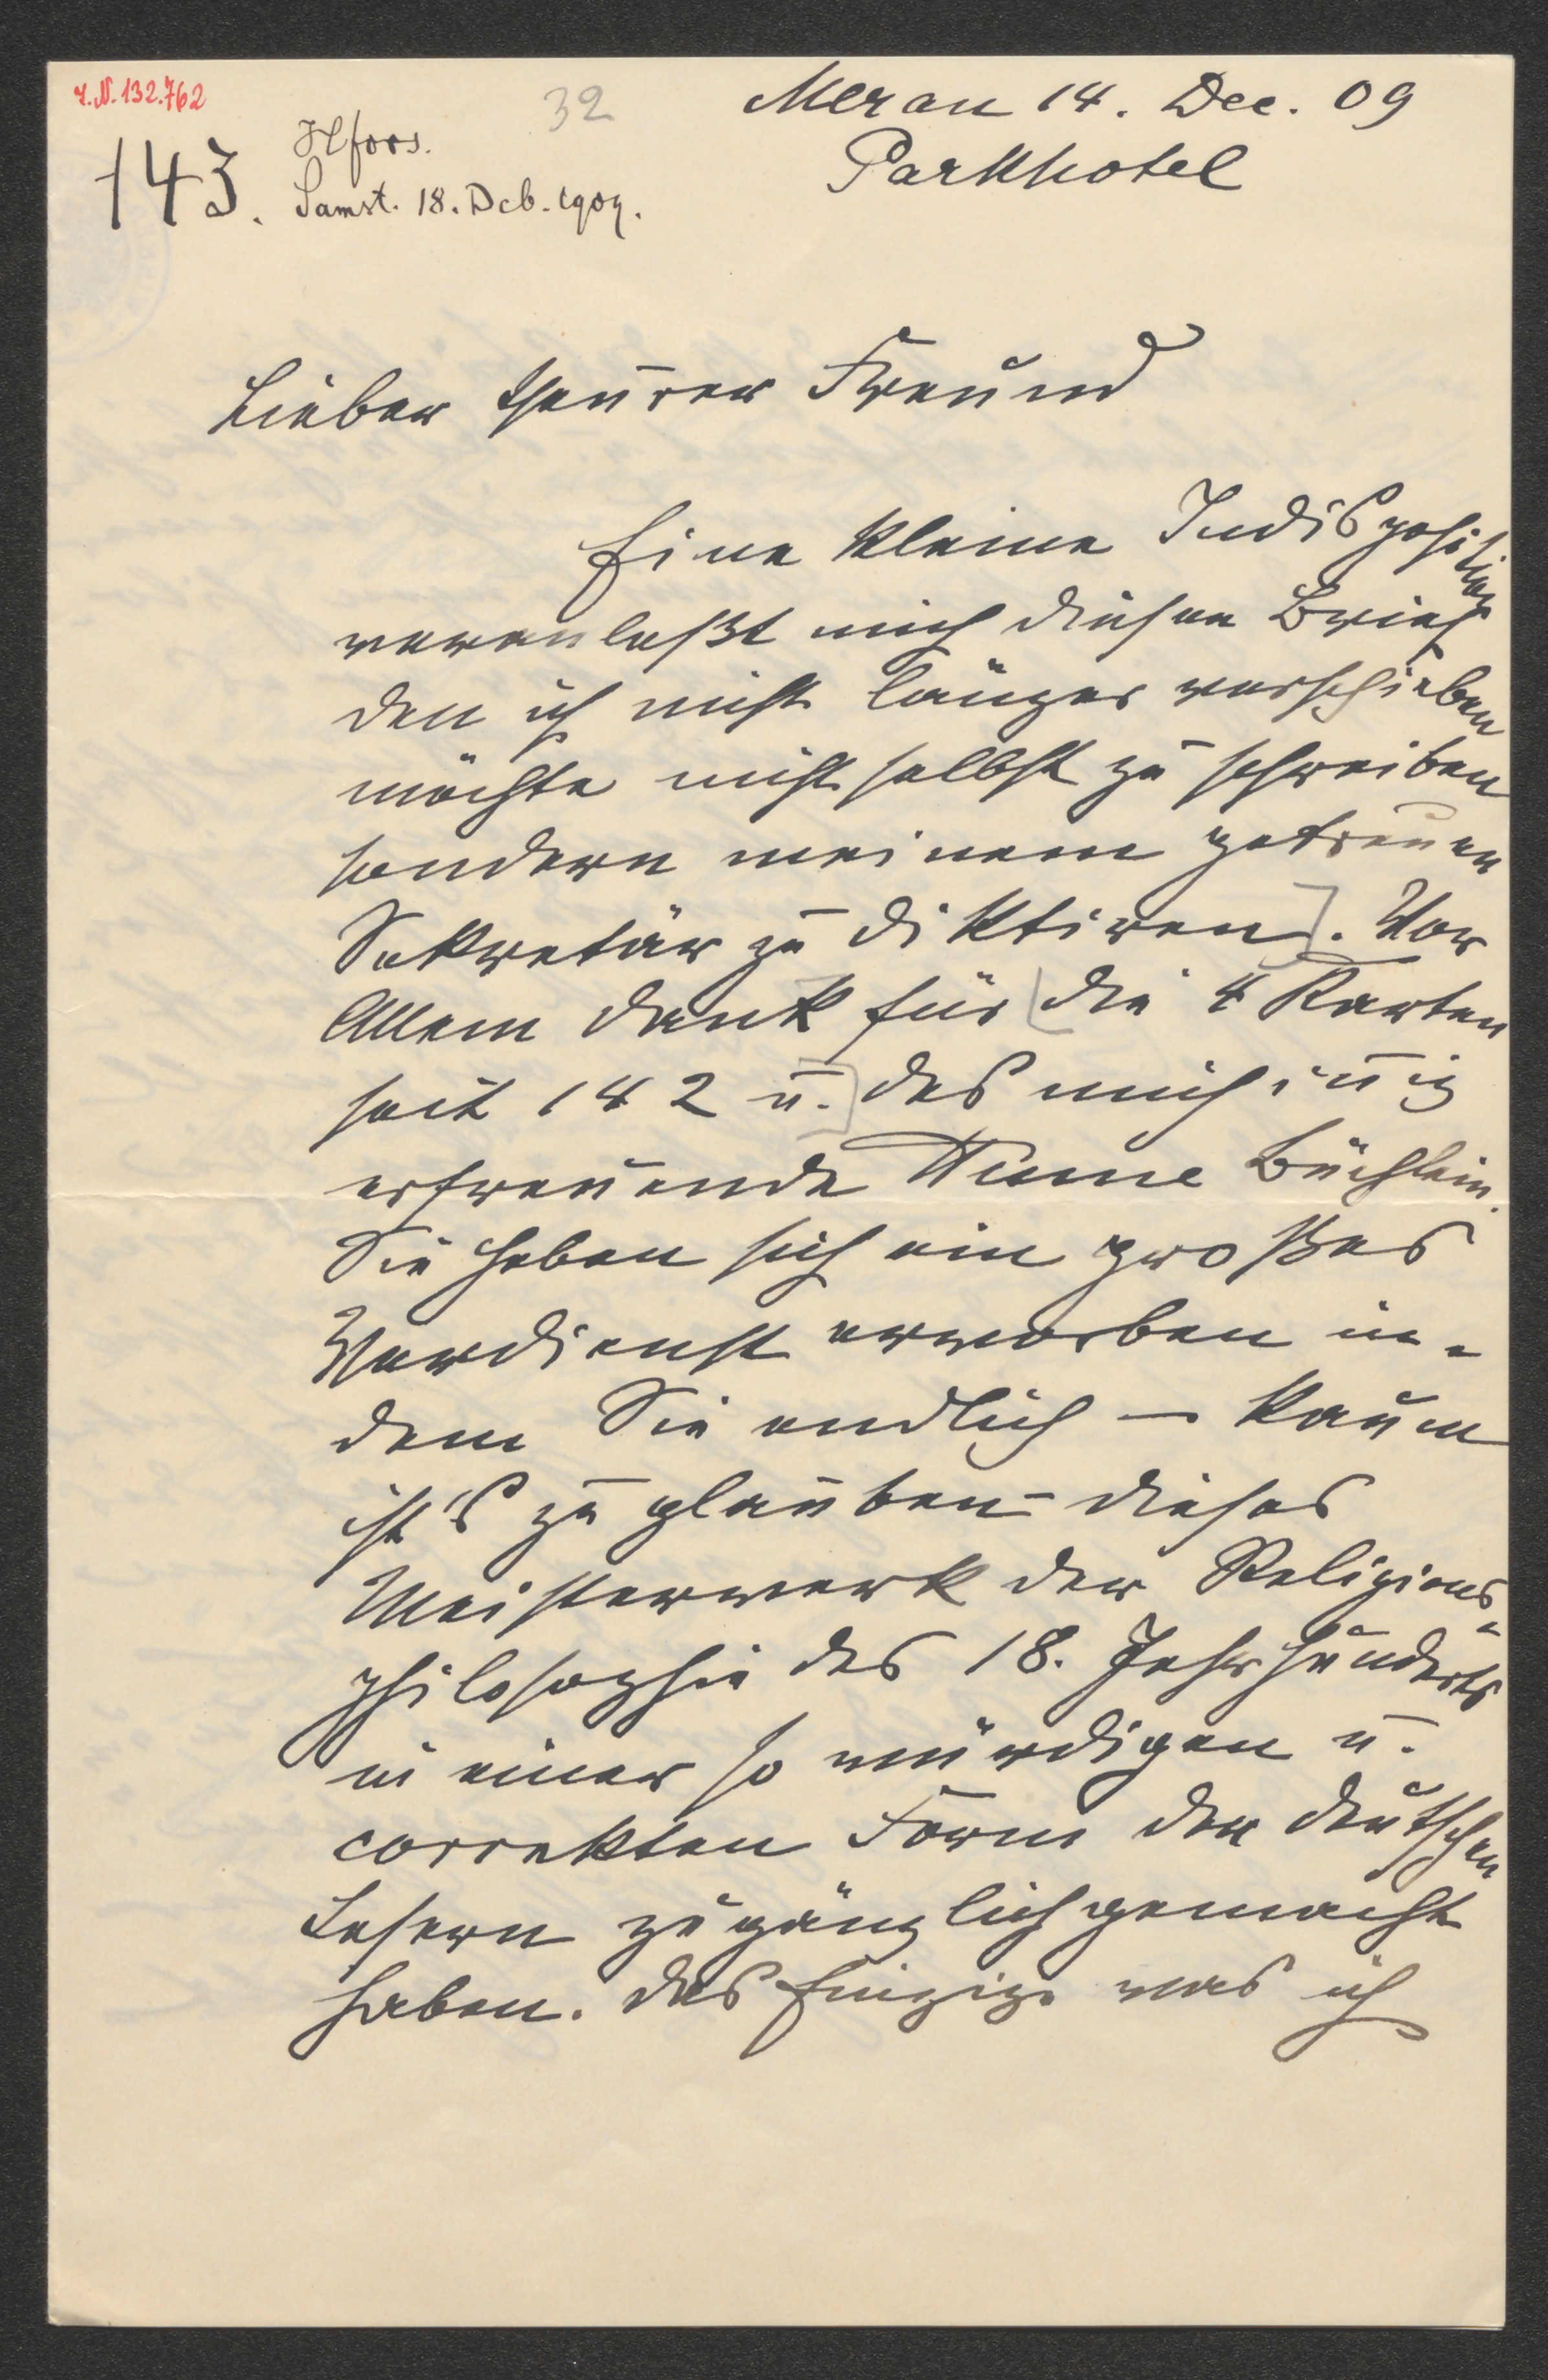 I.N. 132.762
32
Meran 14. Dec. 09
Parkhotel
143.
Samst. 18. Dcb. 1909.
Lieber theurer Freund
Eine kleine Indisposition
veranlaßt mich diesen Brief
den ich nicht länger verschieben
möchte nicht selbst zu schreiben
sondern meinem getreuen
Sekretär zu diktiren]. Vor
Allem Dank für [die 4 Karten
seit 142 u.] das mich innig
erfreuende Hume Büchlein.
Sie haben sich ein großes
Verdienst erworben in-
dem Sie endlich – kaum
ist's zu glauben – dieses
Meisterwerk der Religions-
philosophie des 18. Jahrhunderts
in einer so würdigen u.
correkten Form den deutschen
Lesern zugänglich gemacht
haben. Das Einzige was ich